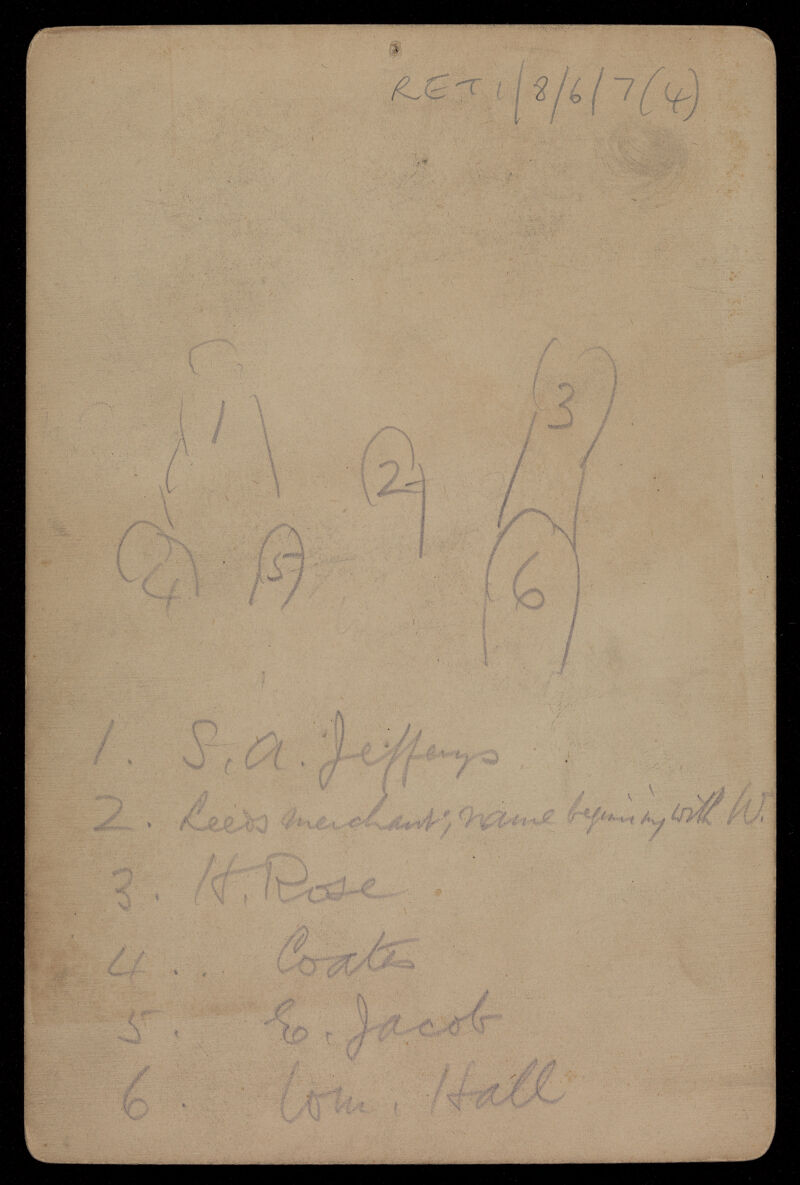 RET 1/8/6/7(4)
1
3
2
4
5
6
1. S. A. Jefferys
2. Leeds merchant; name beginning with W.
3. H. Rose
4. . Coates
5. E. Jacob
6. Wm. Hall